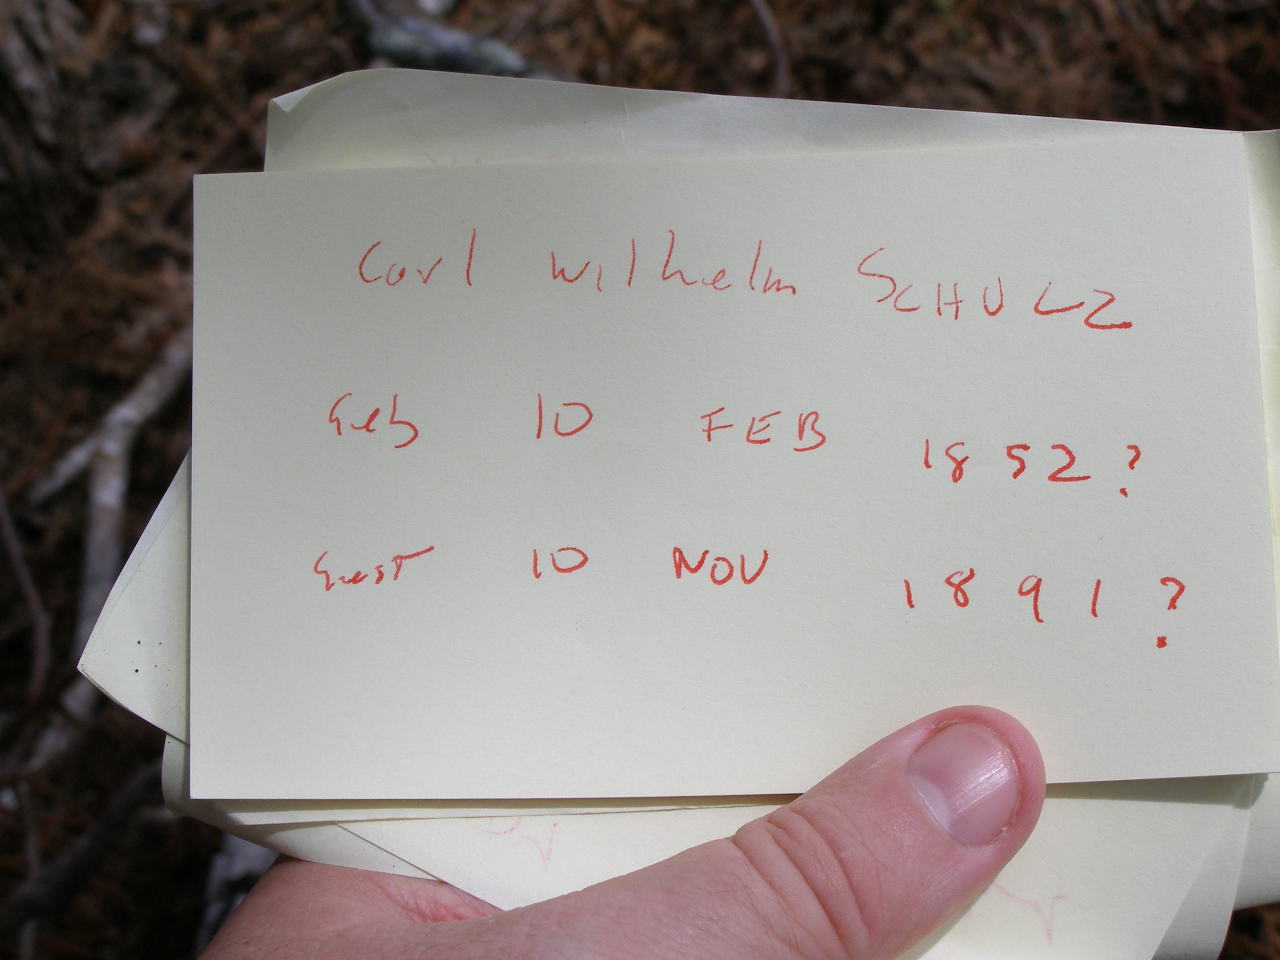 Carl Wilhelm SCHULZ
Geb 10 FEB 1852?
Gest 10 NOV 1891?